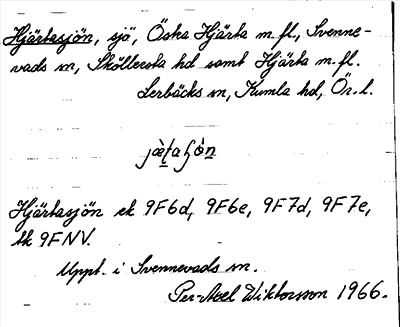 Hjärtasjön, sjö, Östra Hjärta m.fl., Svenne-
vads sn, Sköllersta hd samt Hjärta m.fl.
Lerbäcks sn, Kumla hd, Ör. l.
Hjärtasjön ek 9F6d, 9F6e, 9F7d, 9F7e,
tk 9F NV.
Uppt. i Svennevads sn.
Per-Axel Wiktorsson 1966.